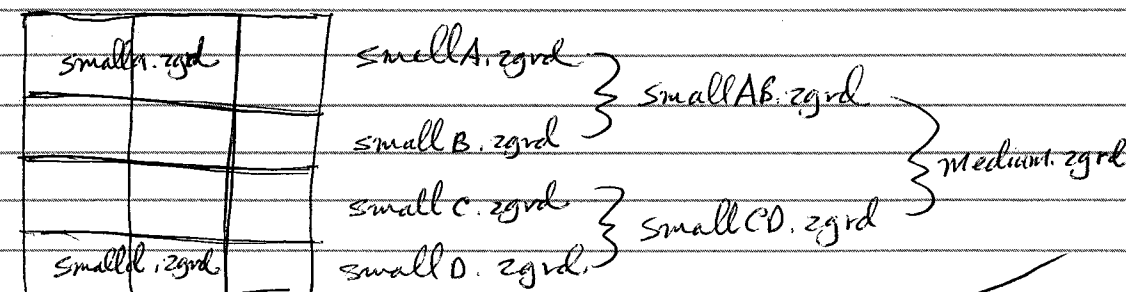 smalla.zgrd
smalld.zgrd
smallA.zgrd
smallB.zgrd
smallC.zgrd
smallD.zgrd.
smallAB.zgrd
smallCD.zgrd
medium.zgrd